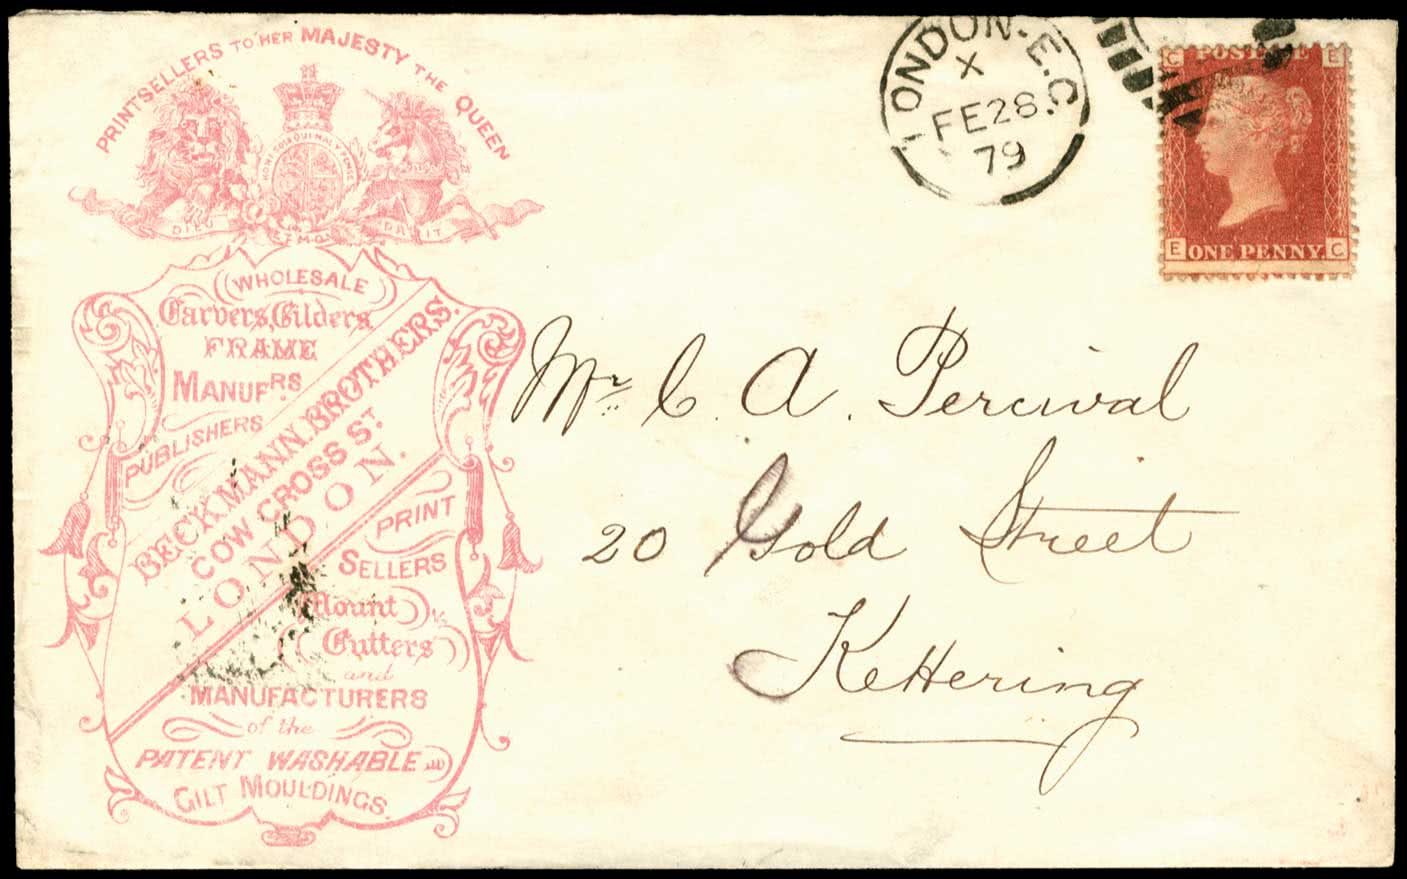 PRINTSELLERS TO HER MAJESTY THE QUEEN
HONI SOIT QUI MAL Y PENSE
DIEU ET MON DROIT
WHOLESALE
Carvers, Gilders
FRAME
MANUFRS
PUBLISHERS
BECKMANN. BROTHERS.
COW CROSS ST
LONDON.
PRINT
SELLERS
Mount
Cutters
and
MANUFACTURERS
of the
PATENT WASHABLE
GILT MOULDINGS.
LONDON-E.C.
X
FE28.
79
C POSTAGE E
E ONE PENNY. C
Mr C. A. Percival
20 Gold Street
Kettering